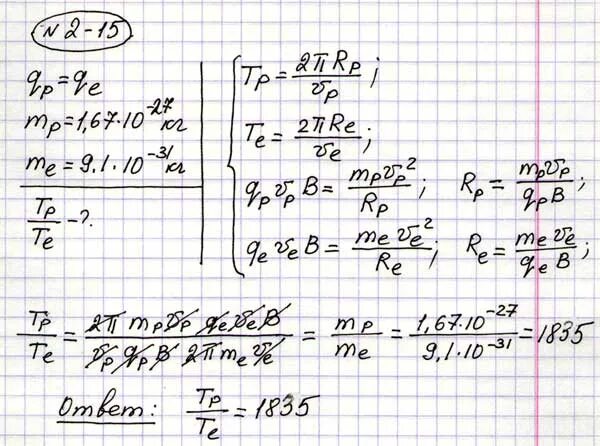 № 2-15
q_p = q_e
m_p = 1,67·10^-27 кг
m_e = 9,1·10^-31 кг
T_p/T_e - ?
T_p = 2πR_p/v_p ;
T_e = 2πR_e/v_e ;
q_p v_p B = m_p v_p^2/R_p ; R_p = m_p v_p/(q_p B) ;
q_e v_e B = m_e v_e^2/R_e ; R_e = m_e v_e/(q_e B) ;
T_p/T_e = (2π m_p v_p q_e v_e B)/(v_p q_p B 2π m_e v_e) = m_p/m_e = 1,67·10^-27/9,1·10^-31 = 1835
Ответ: T_p/T_e = 1835